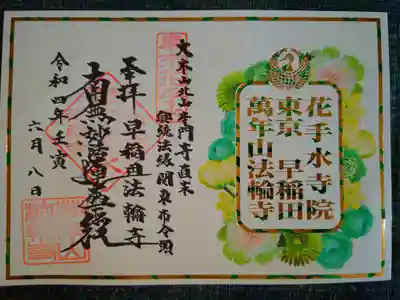 花手水寺院
東京 早稲田
萬年山法輪寺
大本山北山本門寺直末
興統法縁関東布令頭
奉拝 早稲田法輪寺
南無妙法蓮華経
令和四年壬寅
六月八日